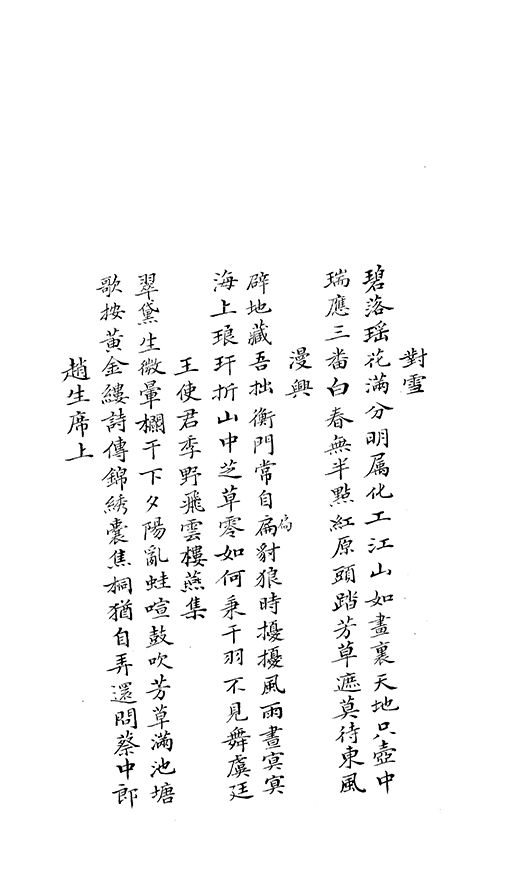 對雪
碧落瑶花滿分明屬化工江山如畫裏天地只壺中
瑞應三畨白春無半點紅原頭踏芳草遮莫待東風
漫興
辟地藏吾拙衡門常自扄豺狼時擾擾風雨晝寞寞
扃
海上琅玕折山中芝草零如何秉干羽不見舞虞廷
王使君季野飛雲樓燕集
翠黛生微暈欄干下夕陽亂蛙喧鼓吹芳草滿池塘
歌按黃金縷詩傳錦綉囊焦桐猶自弄還問蔡中郎
趙生席上